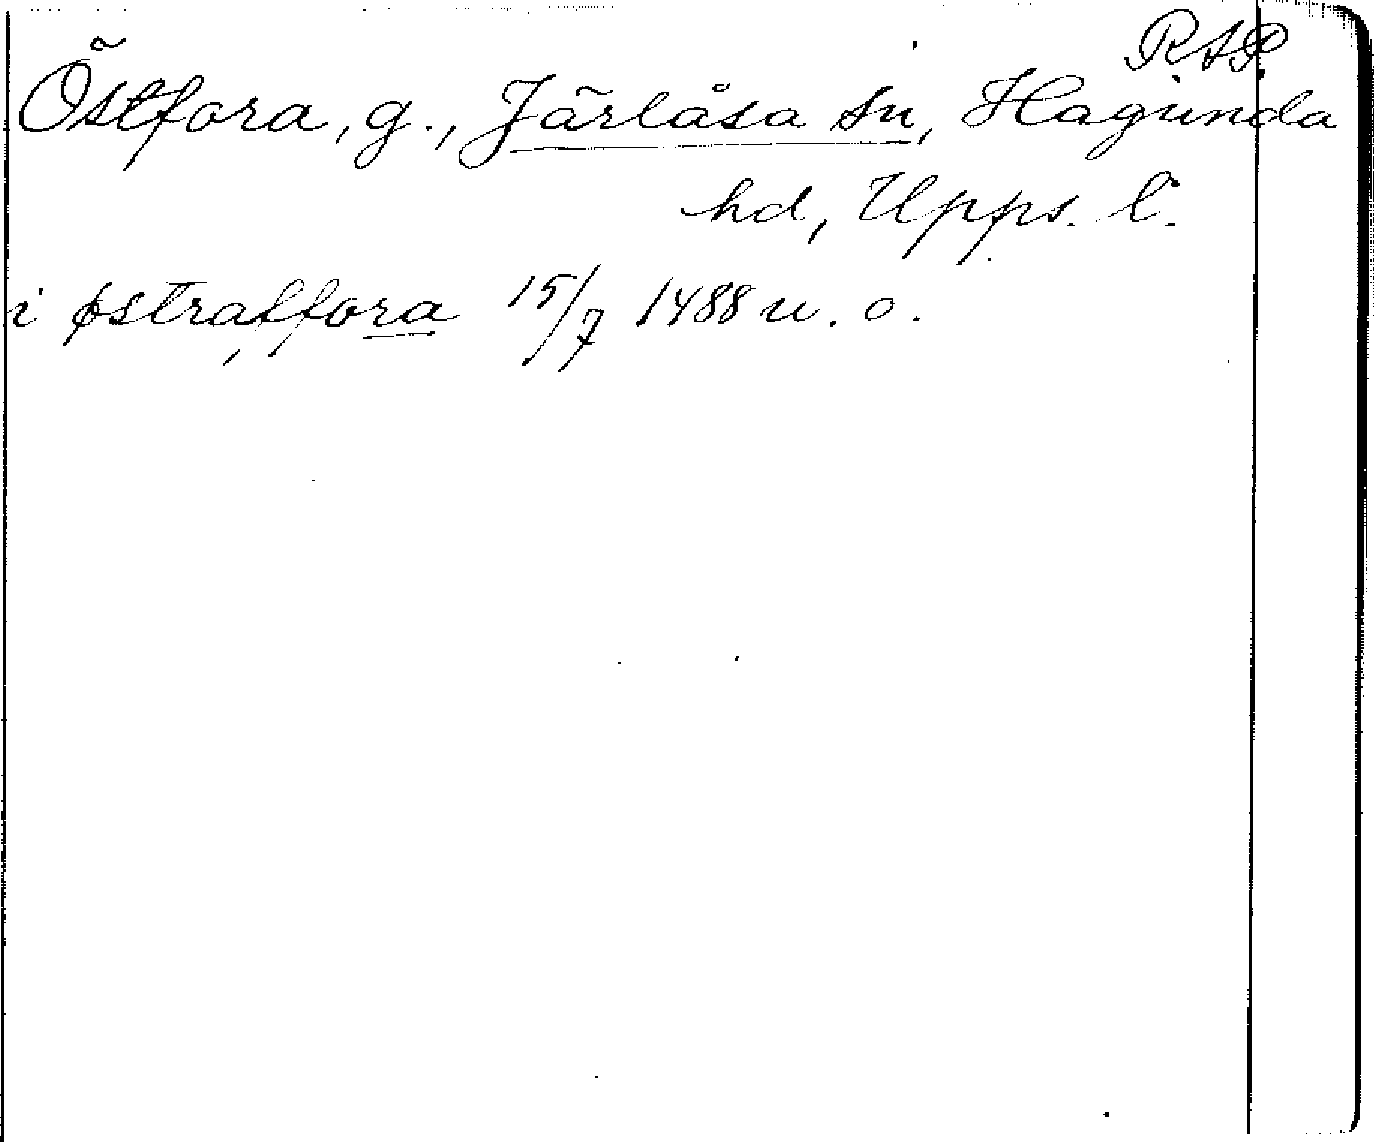 RAP
Östfora, g., Järlåsa sn, Hagunda
hd, Upps. l.
i østraffora 15/7 1488 u. o.